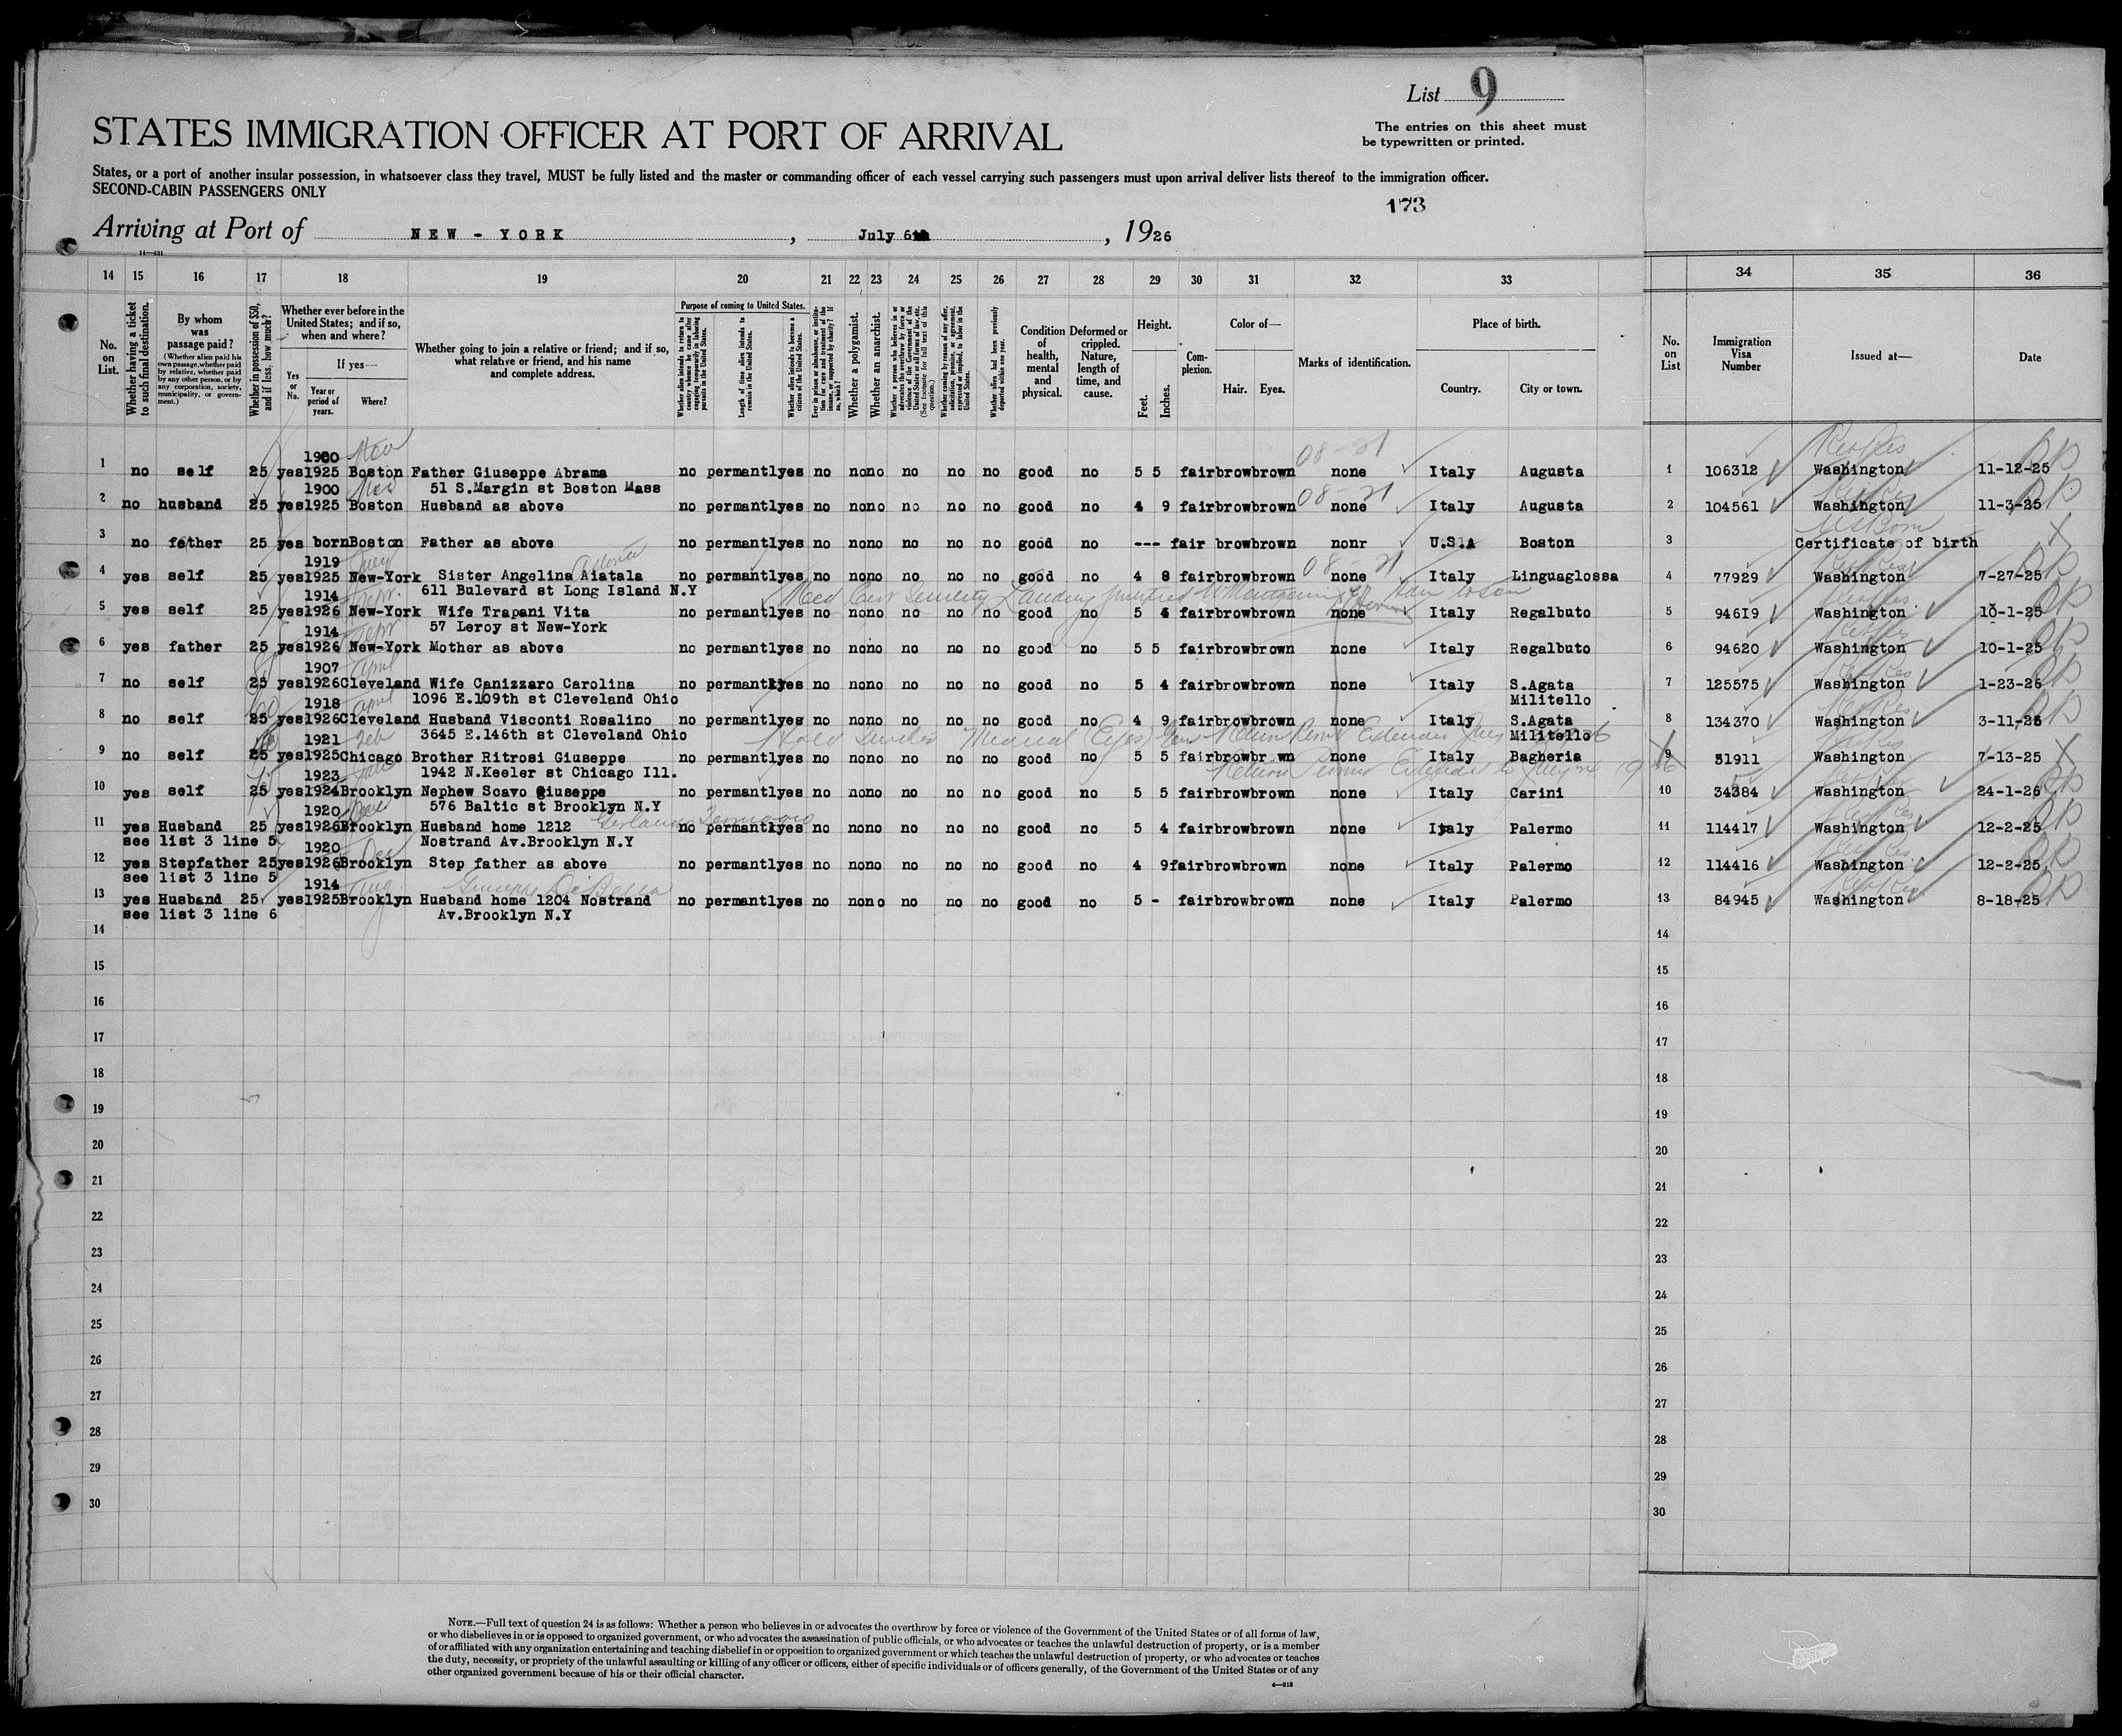 List 9
STATES IMMIGRATION OFFICER AT PORT OF ARRIVAL
The entries on this sheet must
be typewritten or printed.
States, or a port of another insular possession, in whatsoever class they travel, MUST be fully listed and the master or commanding officer of each vessel carrying such passengers must upon arrival deliver lists thereof to the immigration officer.
SECOND-CABIN PASSENGERS ONLY
173
Arriving at Port of NEW-YORK, July 6th, 1926
14—431
14 15 16 17 18 19 20 21 22 23 24 25 26 27 28 29 30 31 32 33 34 35 36
No. on List.
Whether having a ticket to such final destination.
By whom was passage paid?
(Whether alien paid his own passage, whether paid by relative, whether paid by any other person, or by any corporation, society, municipality, or government.)
Whether in possession of $50, and if less, how much?
Whether ever before in the United States; and if so, when and where?
Yes or No.
If yes—
Year or period of years.
Where?
Whether going to join a relative or friend; and if so, what relative or friend, and his name and complete address.
Purpose of coming to United States.
Whether alien intends to return to country whence he came after engaging temporarily in laboring pursuits in the United States.
Length of time alien intends to remain in the United States.
Whether alien intends to become a citizen of the United States.
Ever in prison or almshouse, or institution for care and treatment of the insane, or supported by charity? If so, which?
Whether a polygamist.
Whether an anarchist.
Whether a person who believes in or advocates the overthrow by force or violence of the Government of the United States or all forms of law, etc. (See footnote for full text of this question.)
Whether coming by reason of any offer, solicitation, promise, or agreement, expressed or implied, to labor in the United States.
Whether alien had been previously deported within one year.
Condition of health, mental and physical.
Deformed or crippled. Nature, length of time, and cause.
Height.
Feet. Inches.
Complexion.
Color of—
Hair. Eyes.
Marks of identification.
Place of birth.
Country. City or town.
No. on List
Immigration Visa Number
Issued at—
Date
1900
1 no self 25 yes 1925 Boston Father Giuseppe Abrama no permantly yes no no no no no no good no 5 5 fair brow brown none Italy Augusta 1 106312 Washington 11-12-25
1900 51 S.Margin st Boston Mass
2 no husband 25 yes 1925 Boston Husband as above no permantly yes no no no no no no good no 4 9 fair brow brown none Italy Augusta 2 104561 Washington 11-3-25
3 no father 25 yes born Boston Father as above no permantly yes no no no no no no good no --- fair brow brown nonr U.S.A Boston 3 Certificate of birth
1919
4 yes self 25 yes 1925 New-York Sister Angelina Aiatala no permantly yes no no no no no no good no 4 8 fair brow brown none Italy Linguaglossa 4 77929 Washington 7-27-25
1914 611 Bulevard st Long Island N.Y
5 yes self 25 yes 1926 New-York Wife Trapani Vita no permantly yes no no no no no no good no 5 4 fair brow brown none Italy Regalbuto 5 94619 Washington 10-1-25
1914 57 Leroy st New-York
6 yes father 25 yes 1926 New-York Mother as above no permantly yes no no no no no no good no 5 5 fair brow brown none Italy Regalbuto 6 94620 Washington 10-1-25
1907
7 no self 25 yes 1926 Cleveland Wife Canizzaro Carolina no permantly yes no no no no no no good no 5 4 fair brow brown none Italy S.Agata 7 125575 Washington 1-23-26
1918 1096 E.109th st Cleveland Ohio Militello
8 no self 25 yes 1926 Cleveland Husband Visconti Rosalino no permantly yes no no no no no no good no 4 9 fair brow brown none Italy S.Agata 8 134370 Washington 3-11-26
1921 3645 E.146th st Cleveland Ohio Militello
9 no self 25 yes 1925 Chicago Brother Ritrosi Giuseppe no permantly yes no no no no no no good no 5 5 fair brow br wn none Italy Bagheria 9 51911 Washington 7-13-25
1923 1942 N.Keeler st Chicago Ill.
10 yes self 25 yes 1924 Brooklyn Nephew Scavo Giuseppe no permantly yes no no no no no no good no 5 5 fair brow brown none Italy Carini 10 34384 Washington 24-1-26
1920 576 Baltic st Brooklyn N.Y
11 yes Husband 25 yes 1926 Brooklyn Husband home 1212 no permantly yes no no no no no no good no 5 4 fair brow brown none Italy Palermo 11 114417 Washington 12-2-25
see list 3 line 5 1920 Nostrand Av.Brooklyn N.Y
12 yes Stepfather 25 yes 1926 Brooklyn Step father as above no permantly yes no no no no no no good no 4 9 fair brow brown none Italy Palermo 12 114416 Washington 12-2-25
see list 3 line 5 1914
13 yes Husband 25 yes 1925 Brooklyn Husband home 1204 Nostrand no permantly yes no no no no no no good no 5 - fair brow brown none Italy Palermo 13 84945 Washington 8-18-25
see list 3 line 6 Av.Brooklyn N.Y
14 14
15 15
16 16
17 17
18 18
19 19
20 20
21 21
22 22
23 23
24 24
25 25
26 26
27 27
28 28
29 29
30 30
NOTE.—Full text of question 24 is as follows: Whether a person who believes in or advocates the overthrow by force or violence of the Government of the United States or of all forms of law,
or who disbelieves in or is opposed to organized government, or who advocates the assassination of public officials, or who advocates or teaches the unlawful destruction of property, or is a member
of or affiliated with any organization entertaining and teaching disbelief in or opposition to organized government or which teaches the unlawful destruction of property, or who advocates or teaches
the duty, necessity, or propriety of the unlawful assaulting or killing of any officer or officers, either of specific individuals or of officers generally, of the Government of the United States or of any
other organized government because of his or their official character.